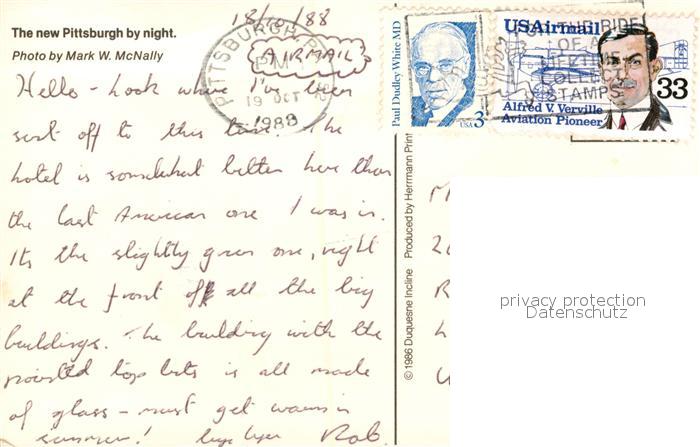 The new Pittsburgh by night.
Photo by Mark W. McNally
18/10/88
AIRMAIL
PITTSBURGH
PM
19 OCT
1988
Hello - Look where I've been
sent off to this time. The
hotel is somewhat better here than
the last American one I was in.
It's the slightly green one, right
at the front of all the big
buildings. The building with the
pointed top bits is all made
of glass - must get warm in
summer! Rob
Paul Dudley White MD
USA 3
USAirmail
33
Alfred V. Verville
Aviation Pioneer
THE RIDE
OF A
LIFETIME
COLLECT
STAMPS
© 1986 Duquesne Incline Produced by Herrmann Print
privacy protection
Datenschutz